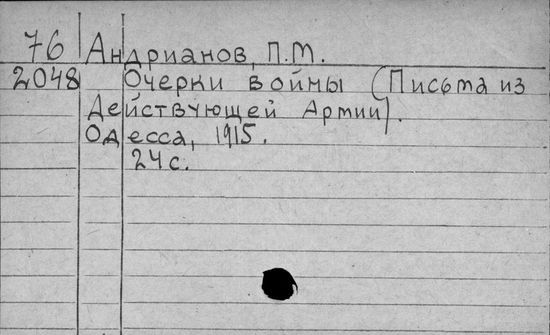 76 Андрианов, П.М.
2048 Очерки войны (Письма из
Действующей Армии).
Одесса, 1915.
24с.